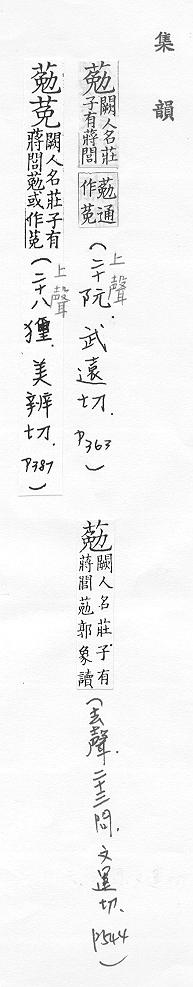 集韻
葂闕人名莊子有蔣閭葂通作莬(上聲二十阮.武遠切.P363)
葂莬闕人名莊子有蔣閭葂或作莬(上聲二十八獮.美辨切.P387)
葂闕人名莊子有蔣閭葂郭象讀(去聲.二十三問.文運切.P544)